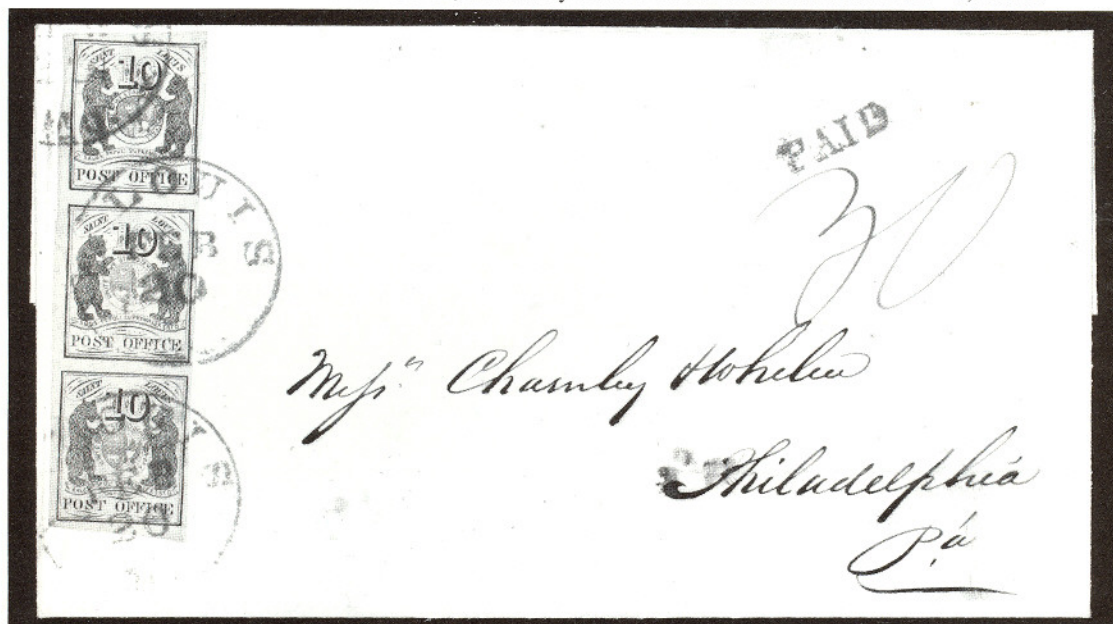 SAINT LOUIS
10
POST OFFICE
SAINT LOUIS
10
POST OFFICE
SAINT LOUIS
10
POST OFFICE
LOUIS
FEB
20
20
PAID
30
Messrs Charnley & Whelen
Philadelphia
Pa